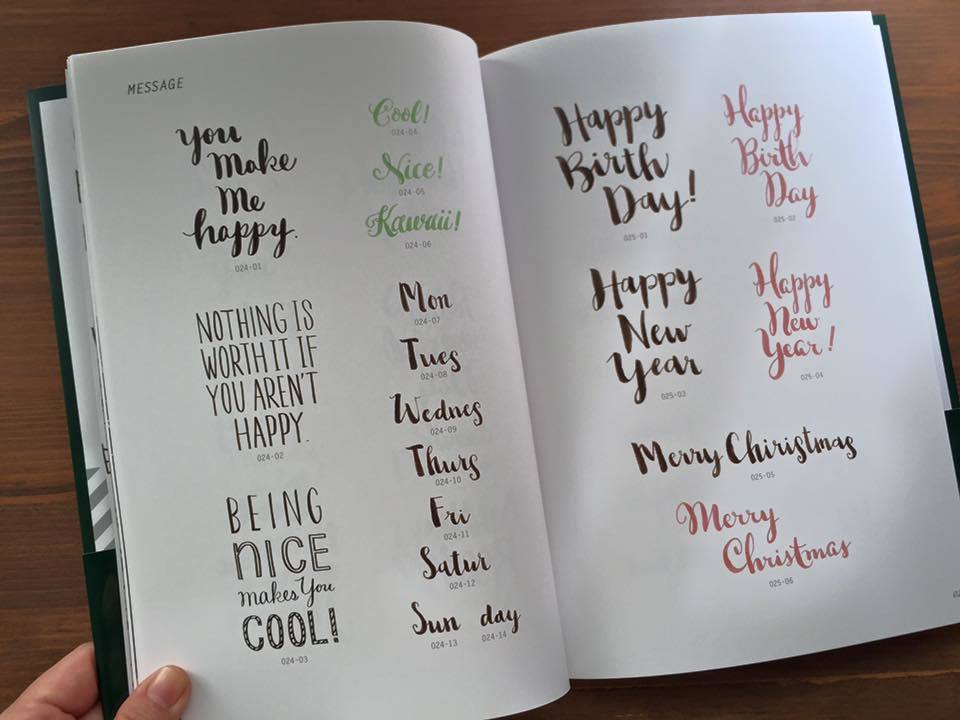 MESSAGE
you
Make
Me
happy.
024-01
NOTHING IS
WORTH IT IF
YOU AREN'T
HAPPY.
024-02
BEING
NICE
makes You
COOL!
024-03
Cool!
024-04
Nice!
024-05
Kawaii!
024-06
Mon
024-07
Tues
024-08
Wednes
024-09
Thurs
024-10
Fri
024-11
Satur
024-12
Sun day
024-13 024-14
Happy
Birth
Day!
025-01
Happy
Birth
Day
025-02
Happy
New
Year
025-03
Happy
New
Year!
025-04
Merry Chiristmas
025-05
Merry
Christmas
025-06